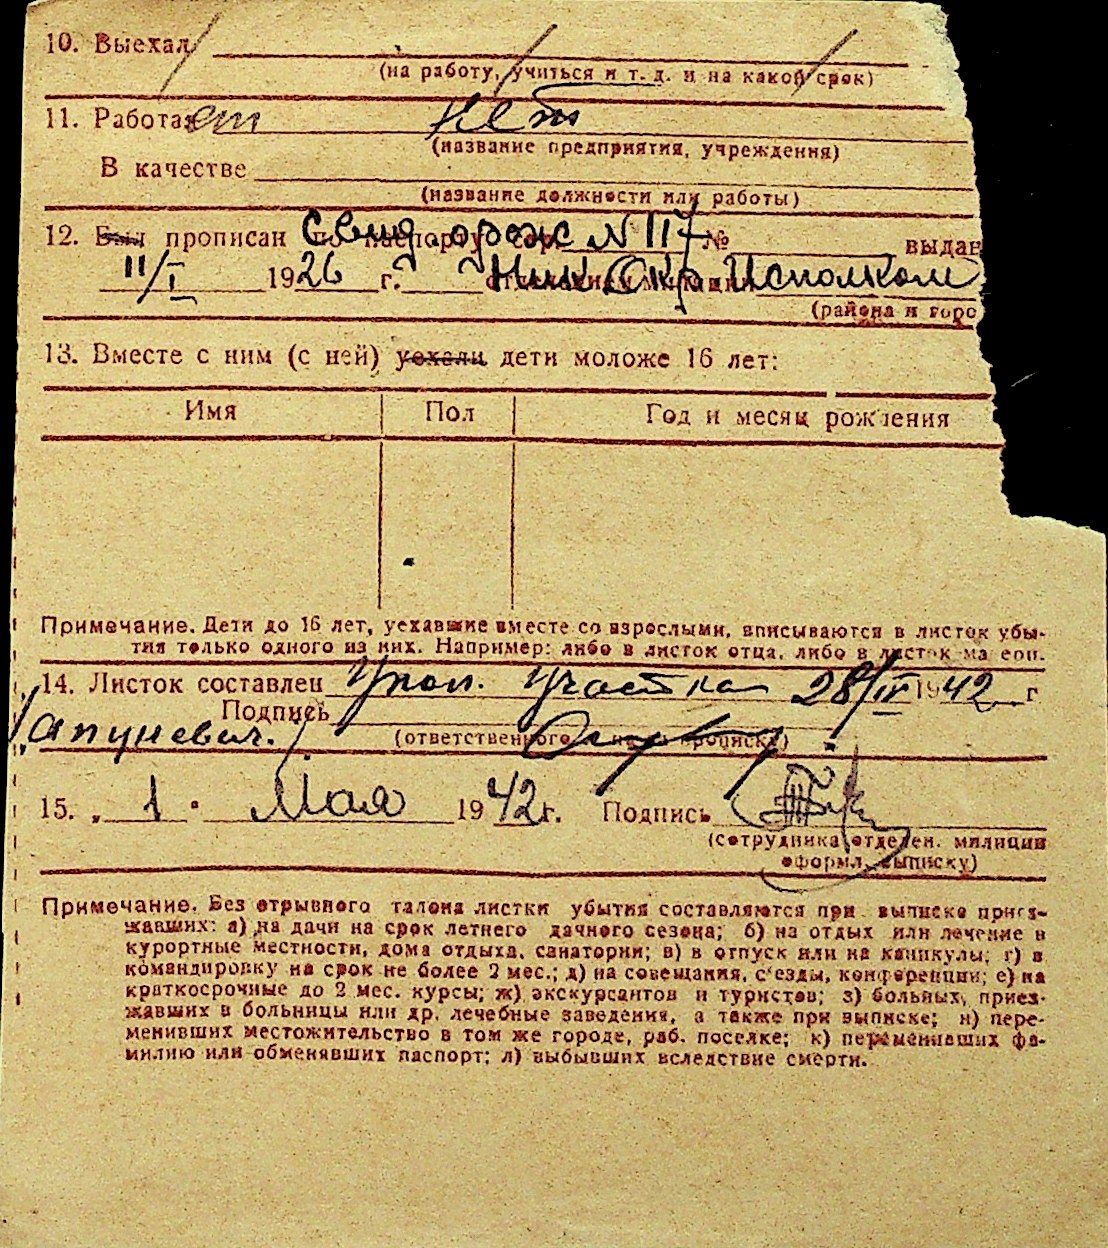 10. Выехал
(на работу, учиться и т. д. и на какой срок)
11. Работает нет
(название предприятия, учреждения)
В качестве
(название должности или работы)
12. Был прописан по паспорту сер. № выдан
Свид о рож N 117
II/I 1926 г. Ник. Окр. Исполком
(района и горо
13. Вместе с ним (с ней) уехали дети моложе 16 лет:
Имя Пол Год и месяц рождения
Примечание. Дети до 16 лет, уехавшие вместе со взрослыми, вписываются в листок убы-
тия только одного из них. Например: либо в листок отца, либо в листок матери.
14. Листок составлен Упол. участка 28/IV 1942 г
Подпись
(ответственного за прописку)
15. „ 1 " Мая 1942 г. Подпись
(сотрудника отделен. милиции
оформл. выписку)
Примечание. Без отрывного талона листки убытия составляются при выписке приез-
жавших: а) на дачи на срок летнего дачного сезона; б) на отдых или лечение в
курортные местности, дома отдыха, санатории; в) в отпуск или на каникулы; г) в
командировку на срок не более 2 мес.; д) на совещания, с'езды, конференции; е) на
краткосрочные до 2 мес. курсы; ж) экскурсантов и туристов; з) больных, приез-
жавших в больницы или др. лечебные заведения, а также при выписке; и) пере-
менивших местожительство в том же городе, раб. поселке; к) переменивших фа-
милию или обменявших паспорт; л) выбывших вследствие смерти.